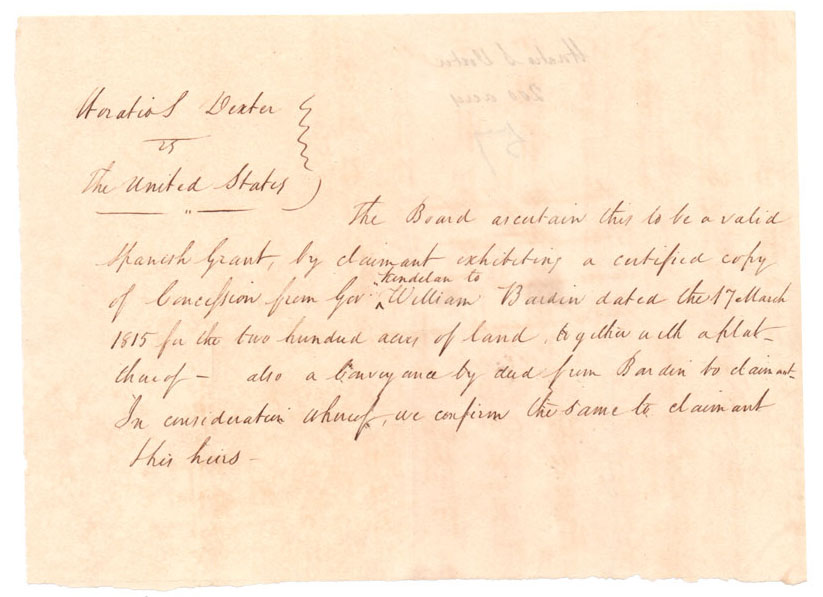 Horatio S Dexter
vs
The United States
The Board ascertain this to be a valid
Spanish Grant, by claimant exhibiting a certified copy
of Concession from Gov Kindelan to William Bardin dated the 17 March
1815 for the two hundred acres of land, together with a plat
thereof — also a Conveyance by deed from Bardin to claimant.
In consideration whereof, we confirm the same to claimant
& his heirs —